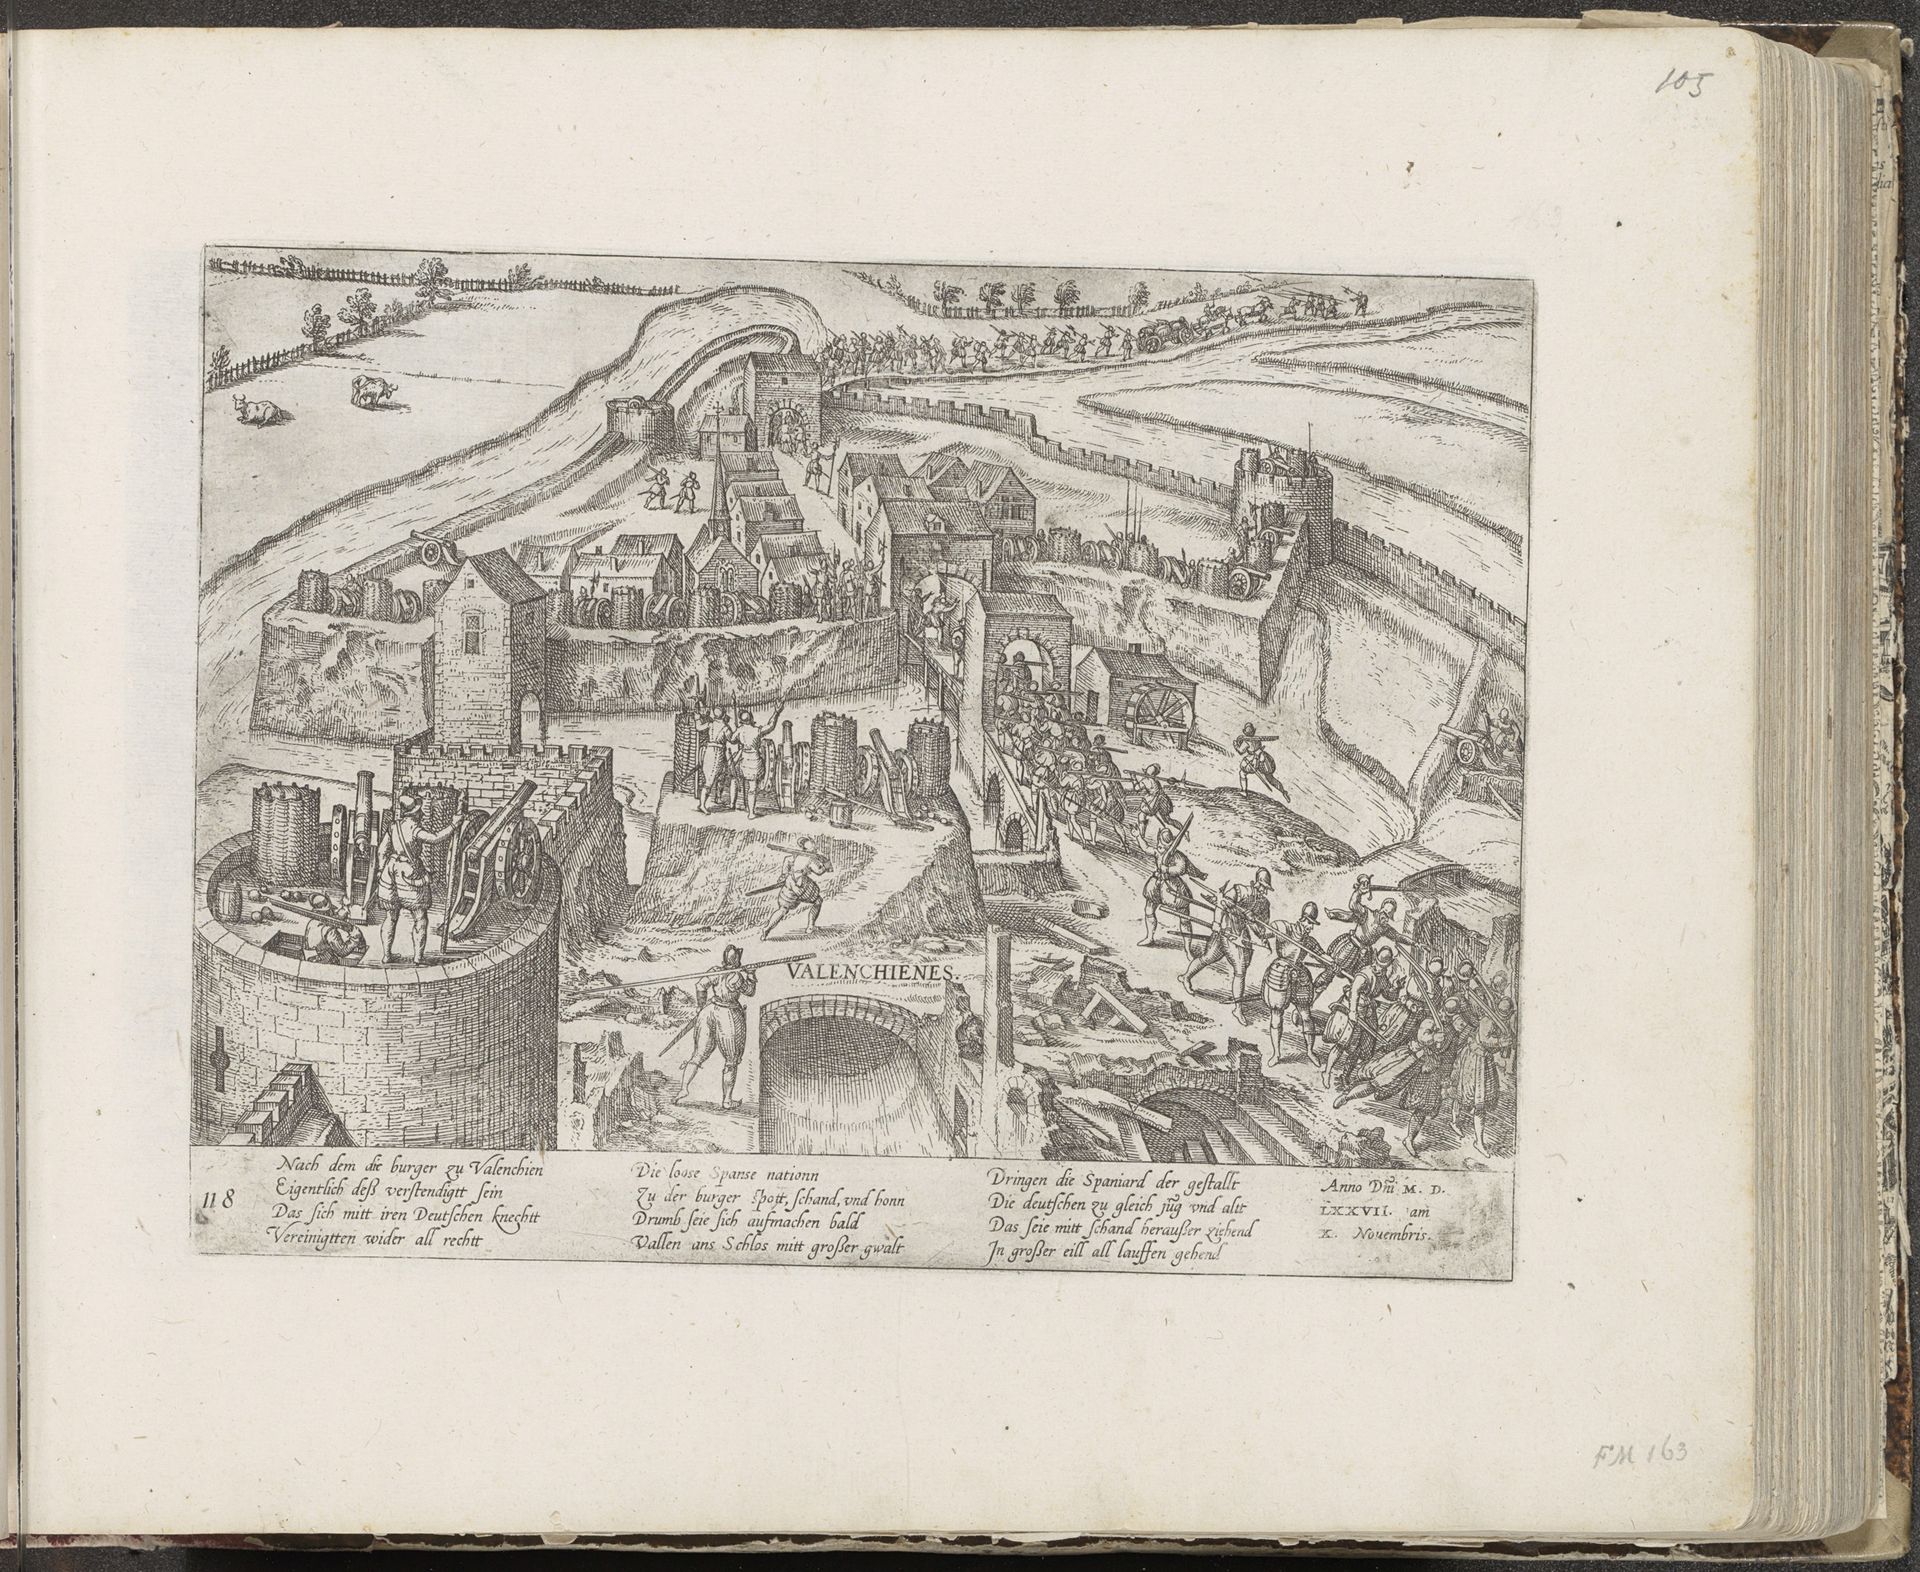 105
VALENCHIENES.
118
Nach dem die burger zu Valenchien
Eigentlich deß verstendigtt sein
Das sich mitt iren Deutschen knechtt
Vereinigtten wider all rechtt
Die loose Spanse nationn
Zu der burger spott, schand, vnd honn
Drumb seie sich aufmachen bald
Vallen ans Schlos mitt großer gwalt
Dringen die Spaniard der gestallt
Die deutschen zu gleich jũg vnd altt
Das seie mitt schand heraußer ziehend
In großer eill all lauffen gehend
Anno Dñi M. D.
LXXVII. am
X. Nouembris.
FM 163